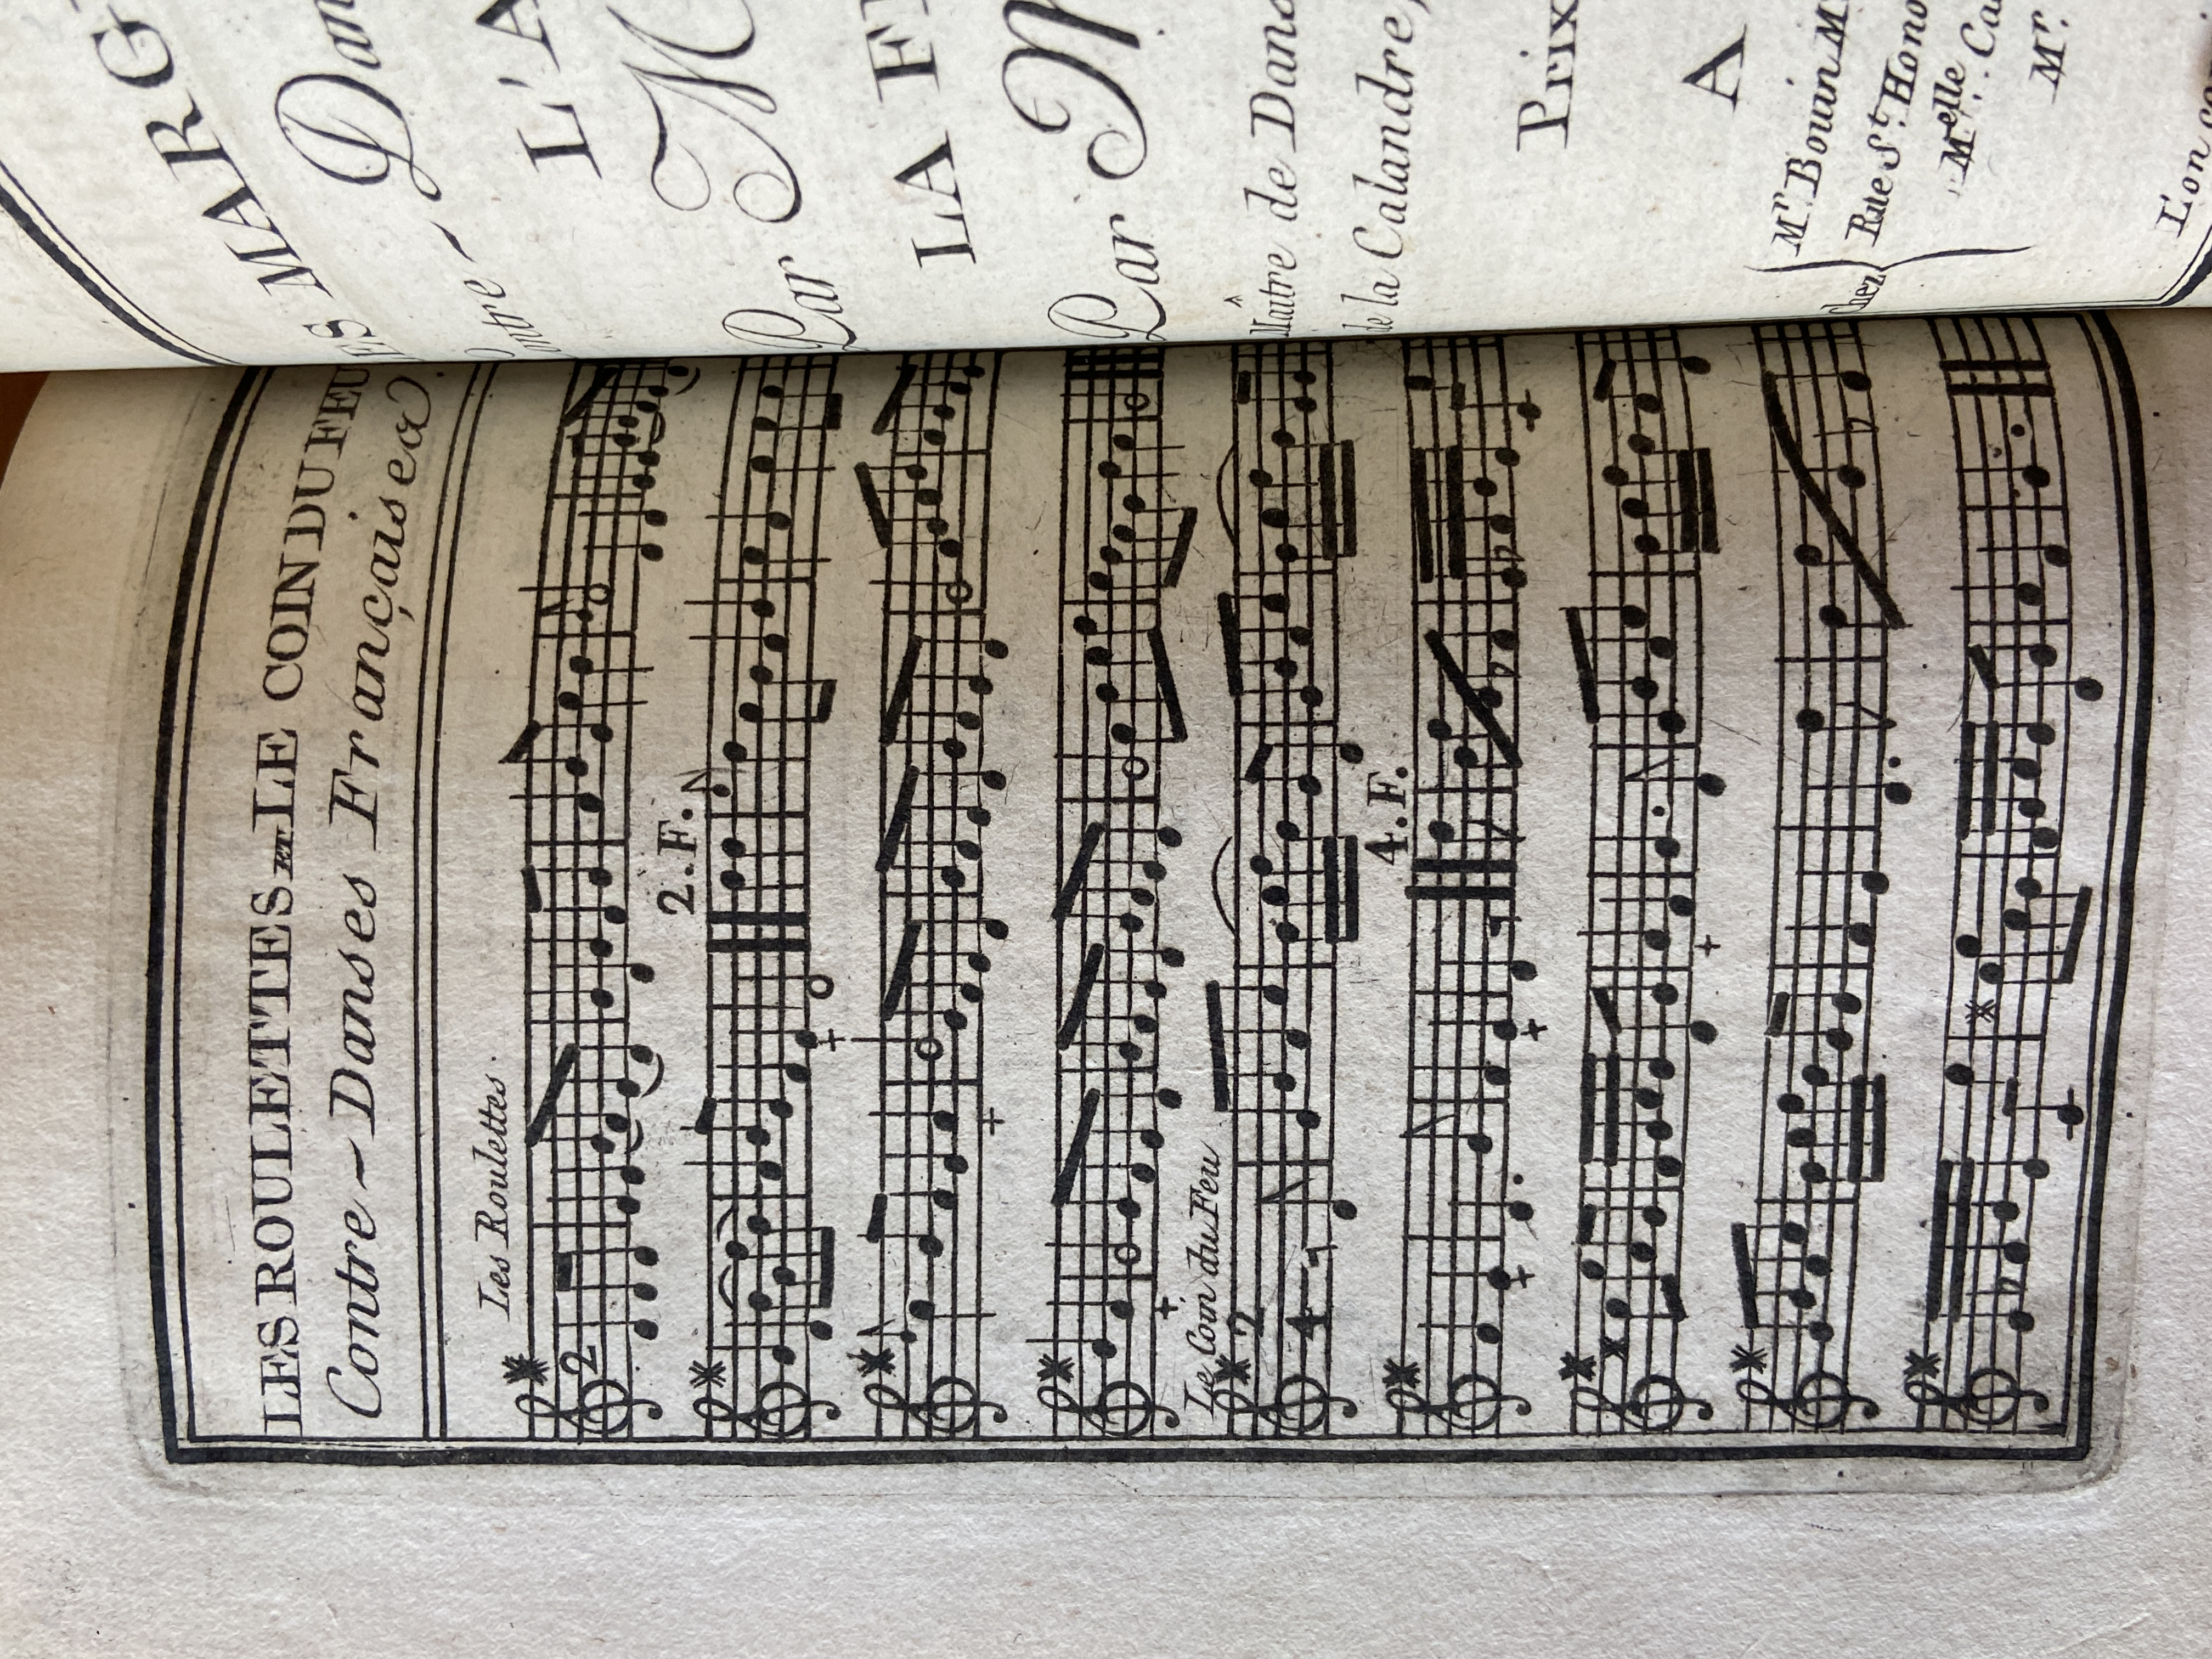 LES ROULETTES ET LE COIN DU FEU
Contre~Danses Françaises
Les Roulettes.
2
2.F.
Le Coin du Feu
2
4
4.F.
MARG
Dan
L'A
Par M
LA F
Par M
Maître de Dans
de la Calandre,
Prix
A
chez
Mr. Bouin M
Rue St. Hono
Melle. Ca
Mr.
L'on